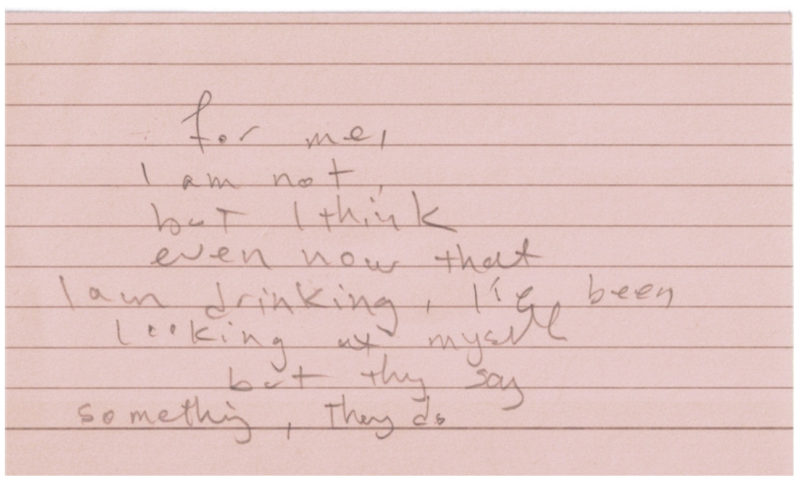 for me,
I am not,
but I think
even now that
I am drinking, I've been
looking at myself
but thy say
something, they do